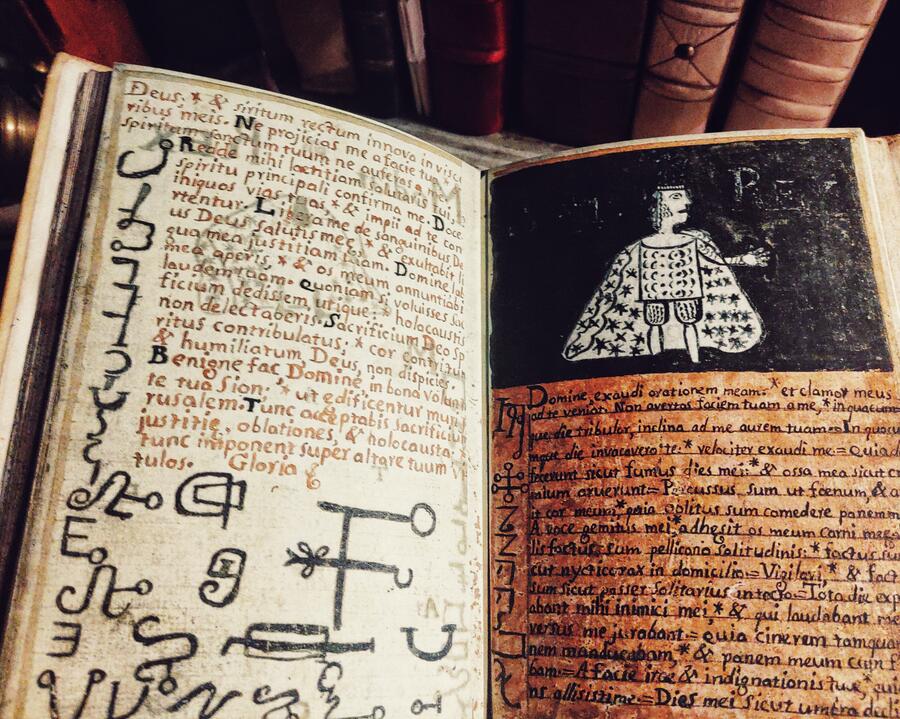 Deus: * & siritum rectum innova in visce
ribus meis. Ne projicias me a facie tua,
spiritum sanctum tuum ne auferas a
Redde mihi laetitiam salutaris tui,
spiritu principali confirma me. Doce
iniquos vias tuas * & impii ad te con
rtentur. Libera me de sanguinibus De
us Deus salutis mee, * & exultabit li
gua mea justitiam tuam. Domine la
mea aperis, * & os meum annuntiabi
laudem tuam. Quoniam si voluisses sa
ficium dedissem utique: * holocaustis
non delectaberis. Sacrificium Deo sp
ritus contribulatus; * cor contritu
& humiliatum Deus, non dispicies.
Benigne fac Domine, in bona volunt
te tua Sion: * ut edificentur mu
rusalem. Tunc acceptabis sacrificiu
justitie, oblationes, & holocausta:
tunc imponent super altare tuum
tulos. Gloria
REX
Domine, exaudi orationem meam: * et clamor meus
ad te veniat. Non avertas faciem tuam a me, * in quacum
que die tribulor, inclina ad me aurem tuam = In quacu
mque die invocavero te: * velociter exaudi me = Quia de
fecerunt sicut fumus dies mei: * & ossa mea sicut cr
mium aruerunt = Percussus sum ut foenum, & a
it cor meum * quia oblitus sum comedere panem m
A voce gemitus mei adhesit os meum carni mee
lis factus sum pellicano solitudinis: * factus su
cut nycticorax in domicilio = Vigilavi, * & fact
sum sicut passer solitarius in tecto = Tota die exp
abant mihi inimici mei, * & qui laudabant me
versus me jurabant = Quia cinerem tamquam
nem manducabam, * & panem meum cum f
bam = A facie irae & indignationis tue, * quia
ns allisisti me = Dies mei sicut umbra decli